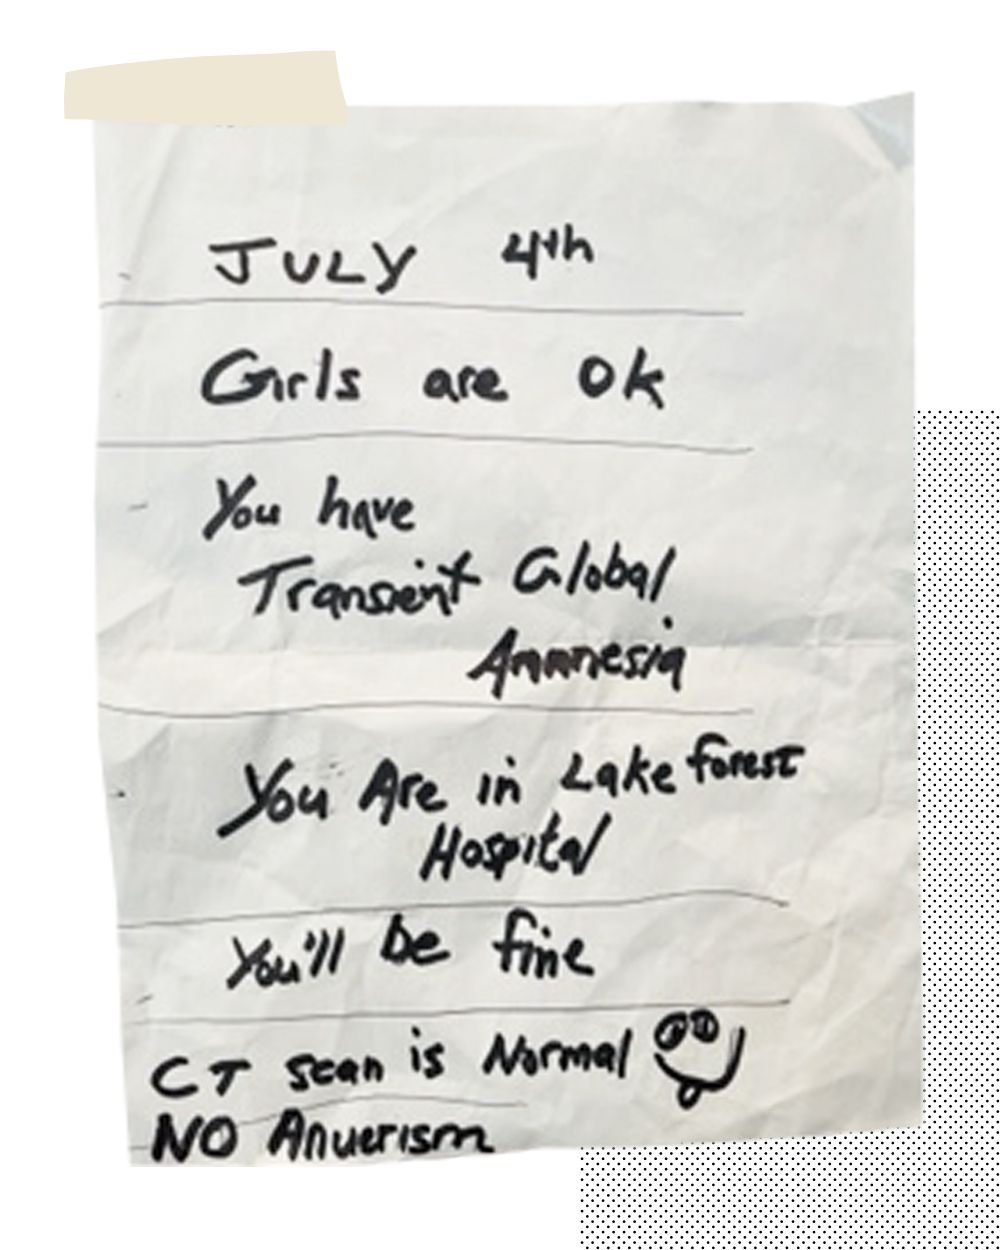 JULY 4th
Girls are ok
You have
Transient Global
Amnesia
You Are in Lake Forest
Hospital
You'll be fine
CT scan is Normal
NO Anuerism